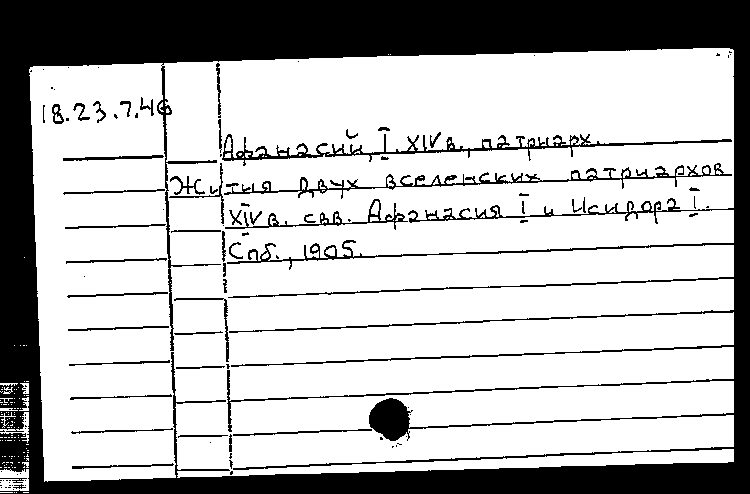 18.23.7.46
Афанасий, I. XIV в., патриарх.
Жития двух вселенских патриархов
XIV в. свв. Афанасия I и Исидора I.
Спб., 1905.